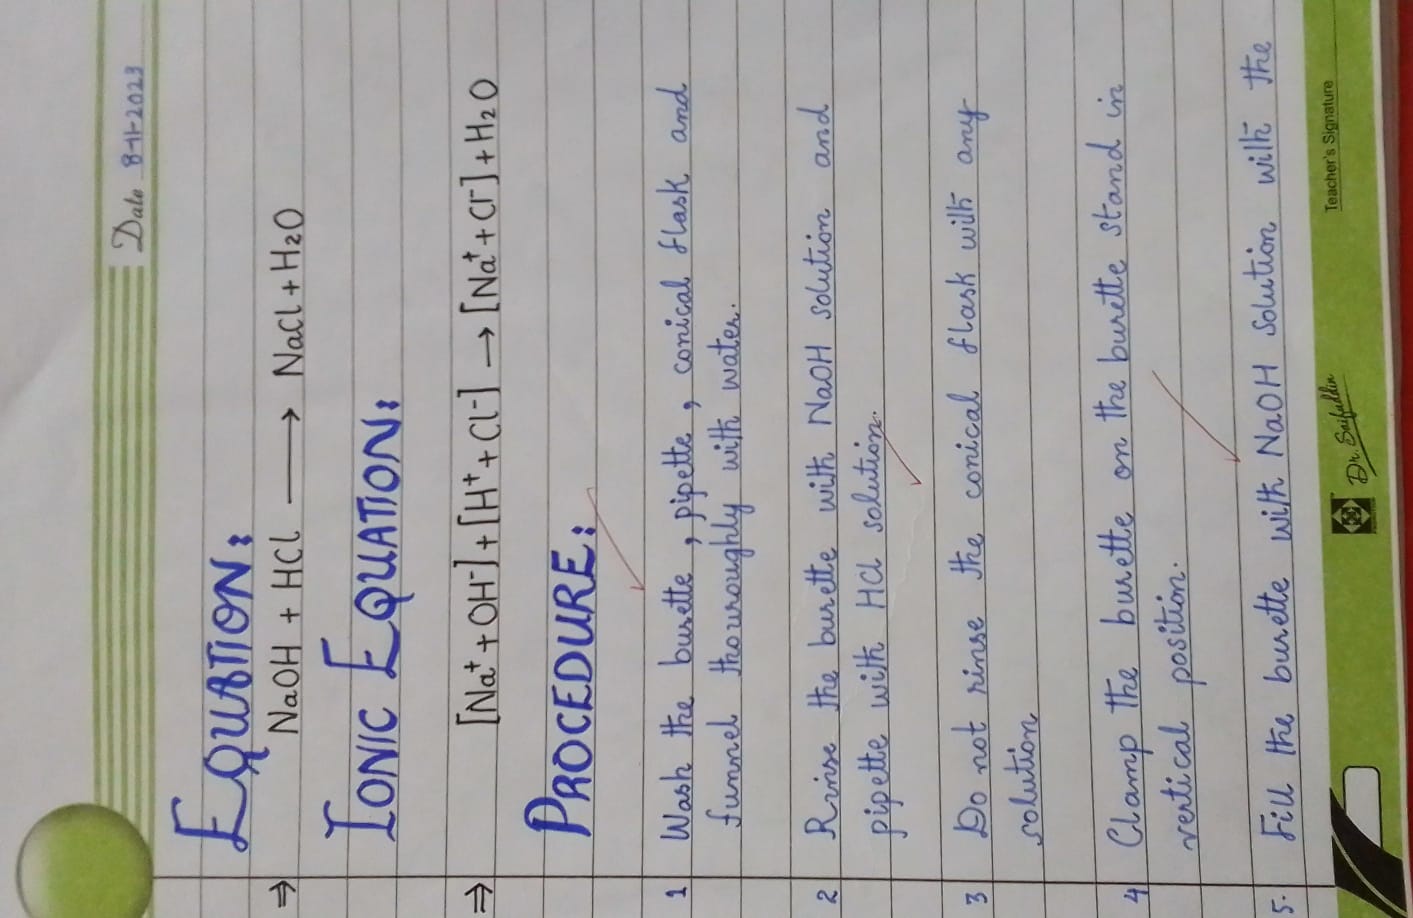 Date 8-11-2023
EQUATION:
⇒ NaOH + HCl ⟶ NaCl + H2O
IONIC EQUATION:
⇒ [Na⁺ + OH⁻] + [H⁺ + Cl⁻] → [Na⁺ + Cl⁻] + H2O
PROCEDURE:
1 Wash the burette, pipette, conical flask and
funnel thouroughly with water.
2 Rinse the burette with NaOH solution and
pipette with HCl solution.
3 Do not rinse the conical flask with any
solution
4 Clamp the burette on the burette stand in
vertical position.
5. Fill the burette with NaOH solution with the
Dr. Saifuddin
Teacher's Signature